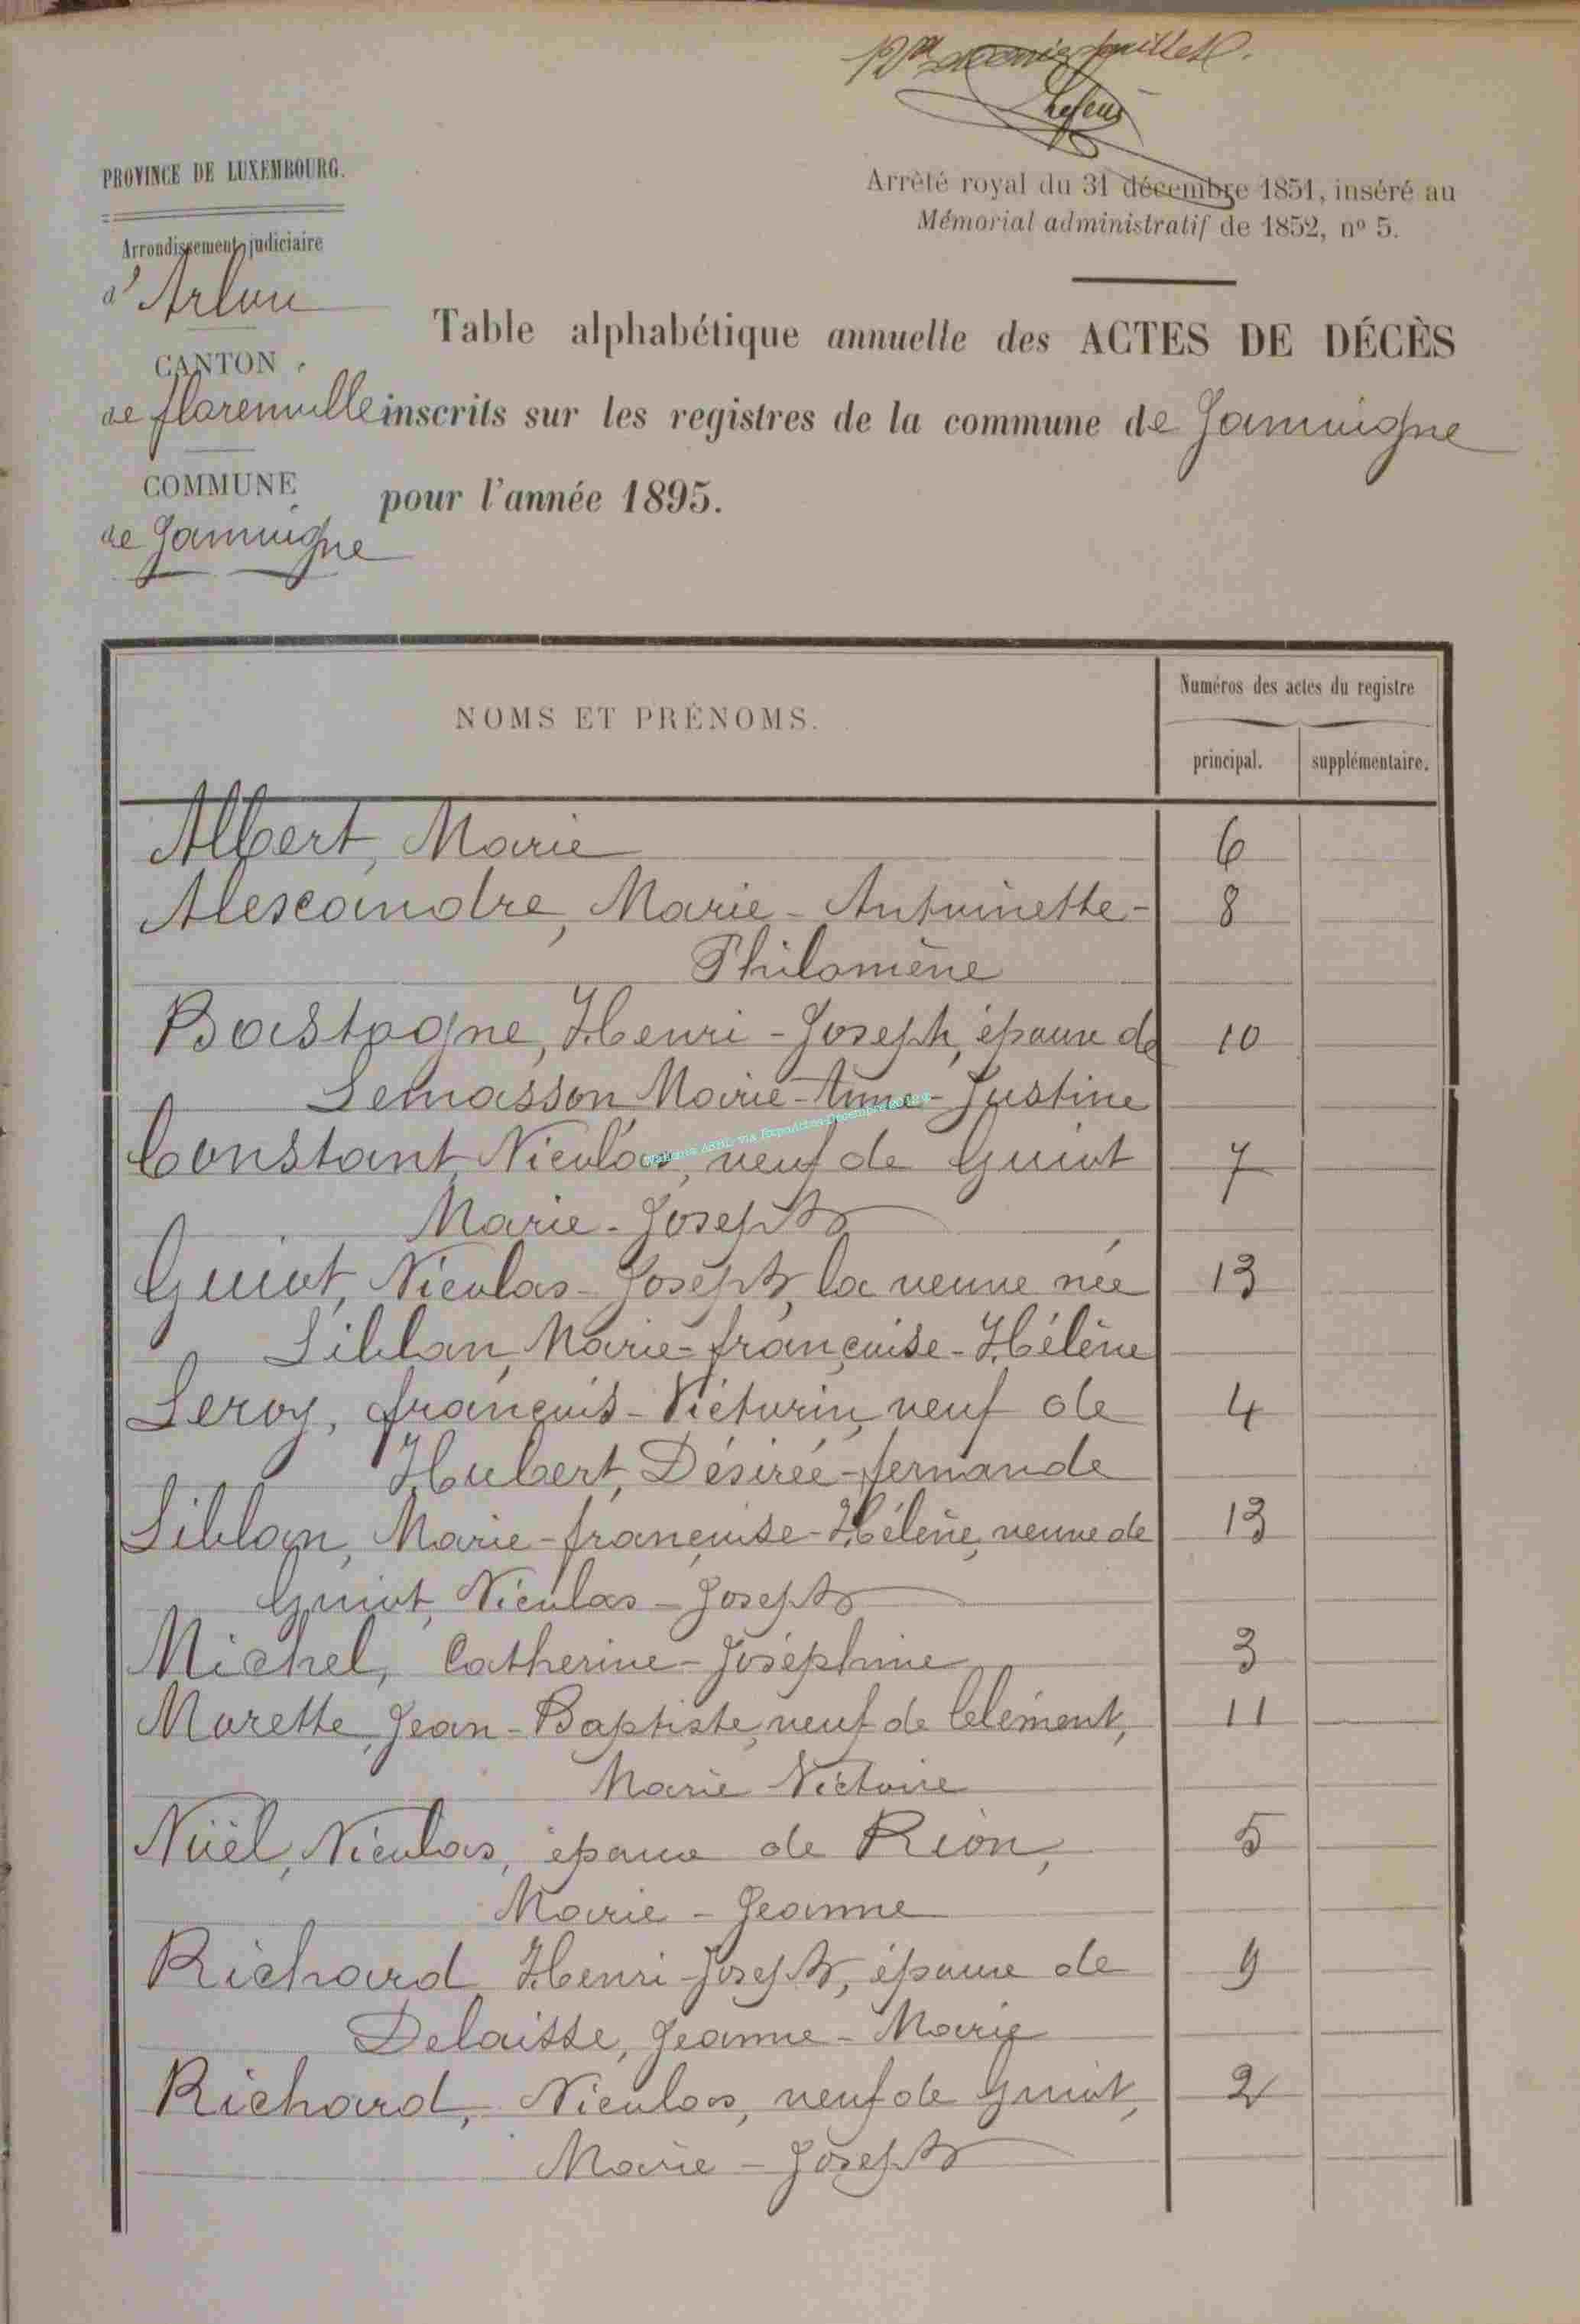 feuillet.
PROVINCE DE LUXEMBOURG.
Arrêté royal du 31 décembre 1851, inséré au
Mémorial administratif de 1852, nº 5.
Arrondissement judiciaire
d'Arlon
CANTON
de florenville
COMMUNE
de Jamoigne
Table alphabétique annuelle des ACTES DE DÉCÈS
inscrits sur les registres de la commune de Jamoigne
pour l'année 1895.
NOMS ET PRÉNOMS.
Numéros des actes du registre
principal. supplémentaire.
Albert, Marie 6
Alexandre, Marie-Antoinette- 8
Philomène
Bastogne, Henri-Joseph, époux de 10
Lemasson Marie-Anne-Justine
Constant, Nicolas, veuf de Guiot 7
Marie-Joseph
Guiot, Nicolas-Joseph, la veuve née 13
Liblan, Marie-françoise-Hélène
Leroy, françois-Victorin, veuf de 4
Hubert, Désirée-fernande
Liblan, Marie-françoise-Hélène, veuve de 13
Guiot, Nicolas-Joseph
Michel, Catherine-Joséphine 3
Morette, Jean-Baptiste, veuf de Clément, 11
Marie Victoire
Noël, Nicolas, époux de Rion, 5
Marie-Jeanne
Richard Henri-Joseph, époux de 9
Delaisse, Jeanne-Marie
Richard, Nicolas, veuf de Guiot, 2
Marie-Joseph